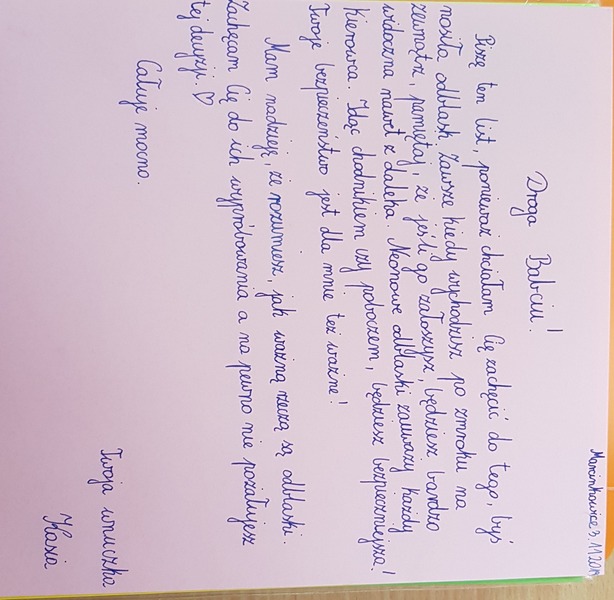 Marcinkowice 3.11.2019
Droga Babciu!
Piszę ten list, ponieważ chciałam Cię zachęcić do tego, byś
nosiła odblask zawsze kiedy wychodzisz po zmroku na
zewnątrz, pamiętaj, że jeśli go założysz, będziesz bardzo
widoczna nawet z daleka. Neonowe odblaski zauważy każdy
kierowca. Idąc chodnikiem czy poboczem, będziesz bezpieczniejsza!
Twoje bezpieczeństwo jest dla mnie też ważne!
Mam nadzieję, że rozumiesz, jak ważną rzeczą są odblaski.
Zachęcam Cię do ich wypróbowania a na pewno nie pożałujesz
tej decyzji. ♡
Całuję mocno.
Twoja wnuczka
Kasia